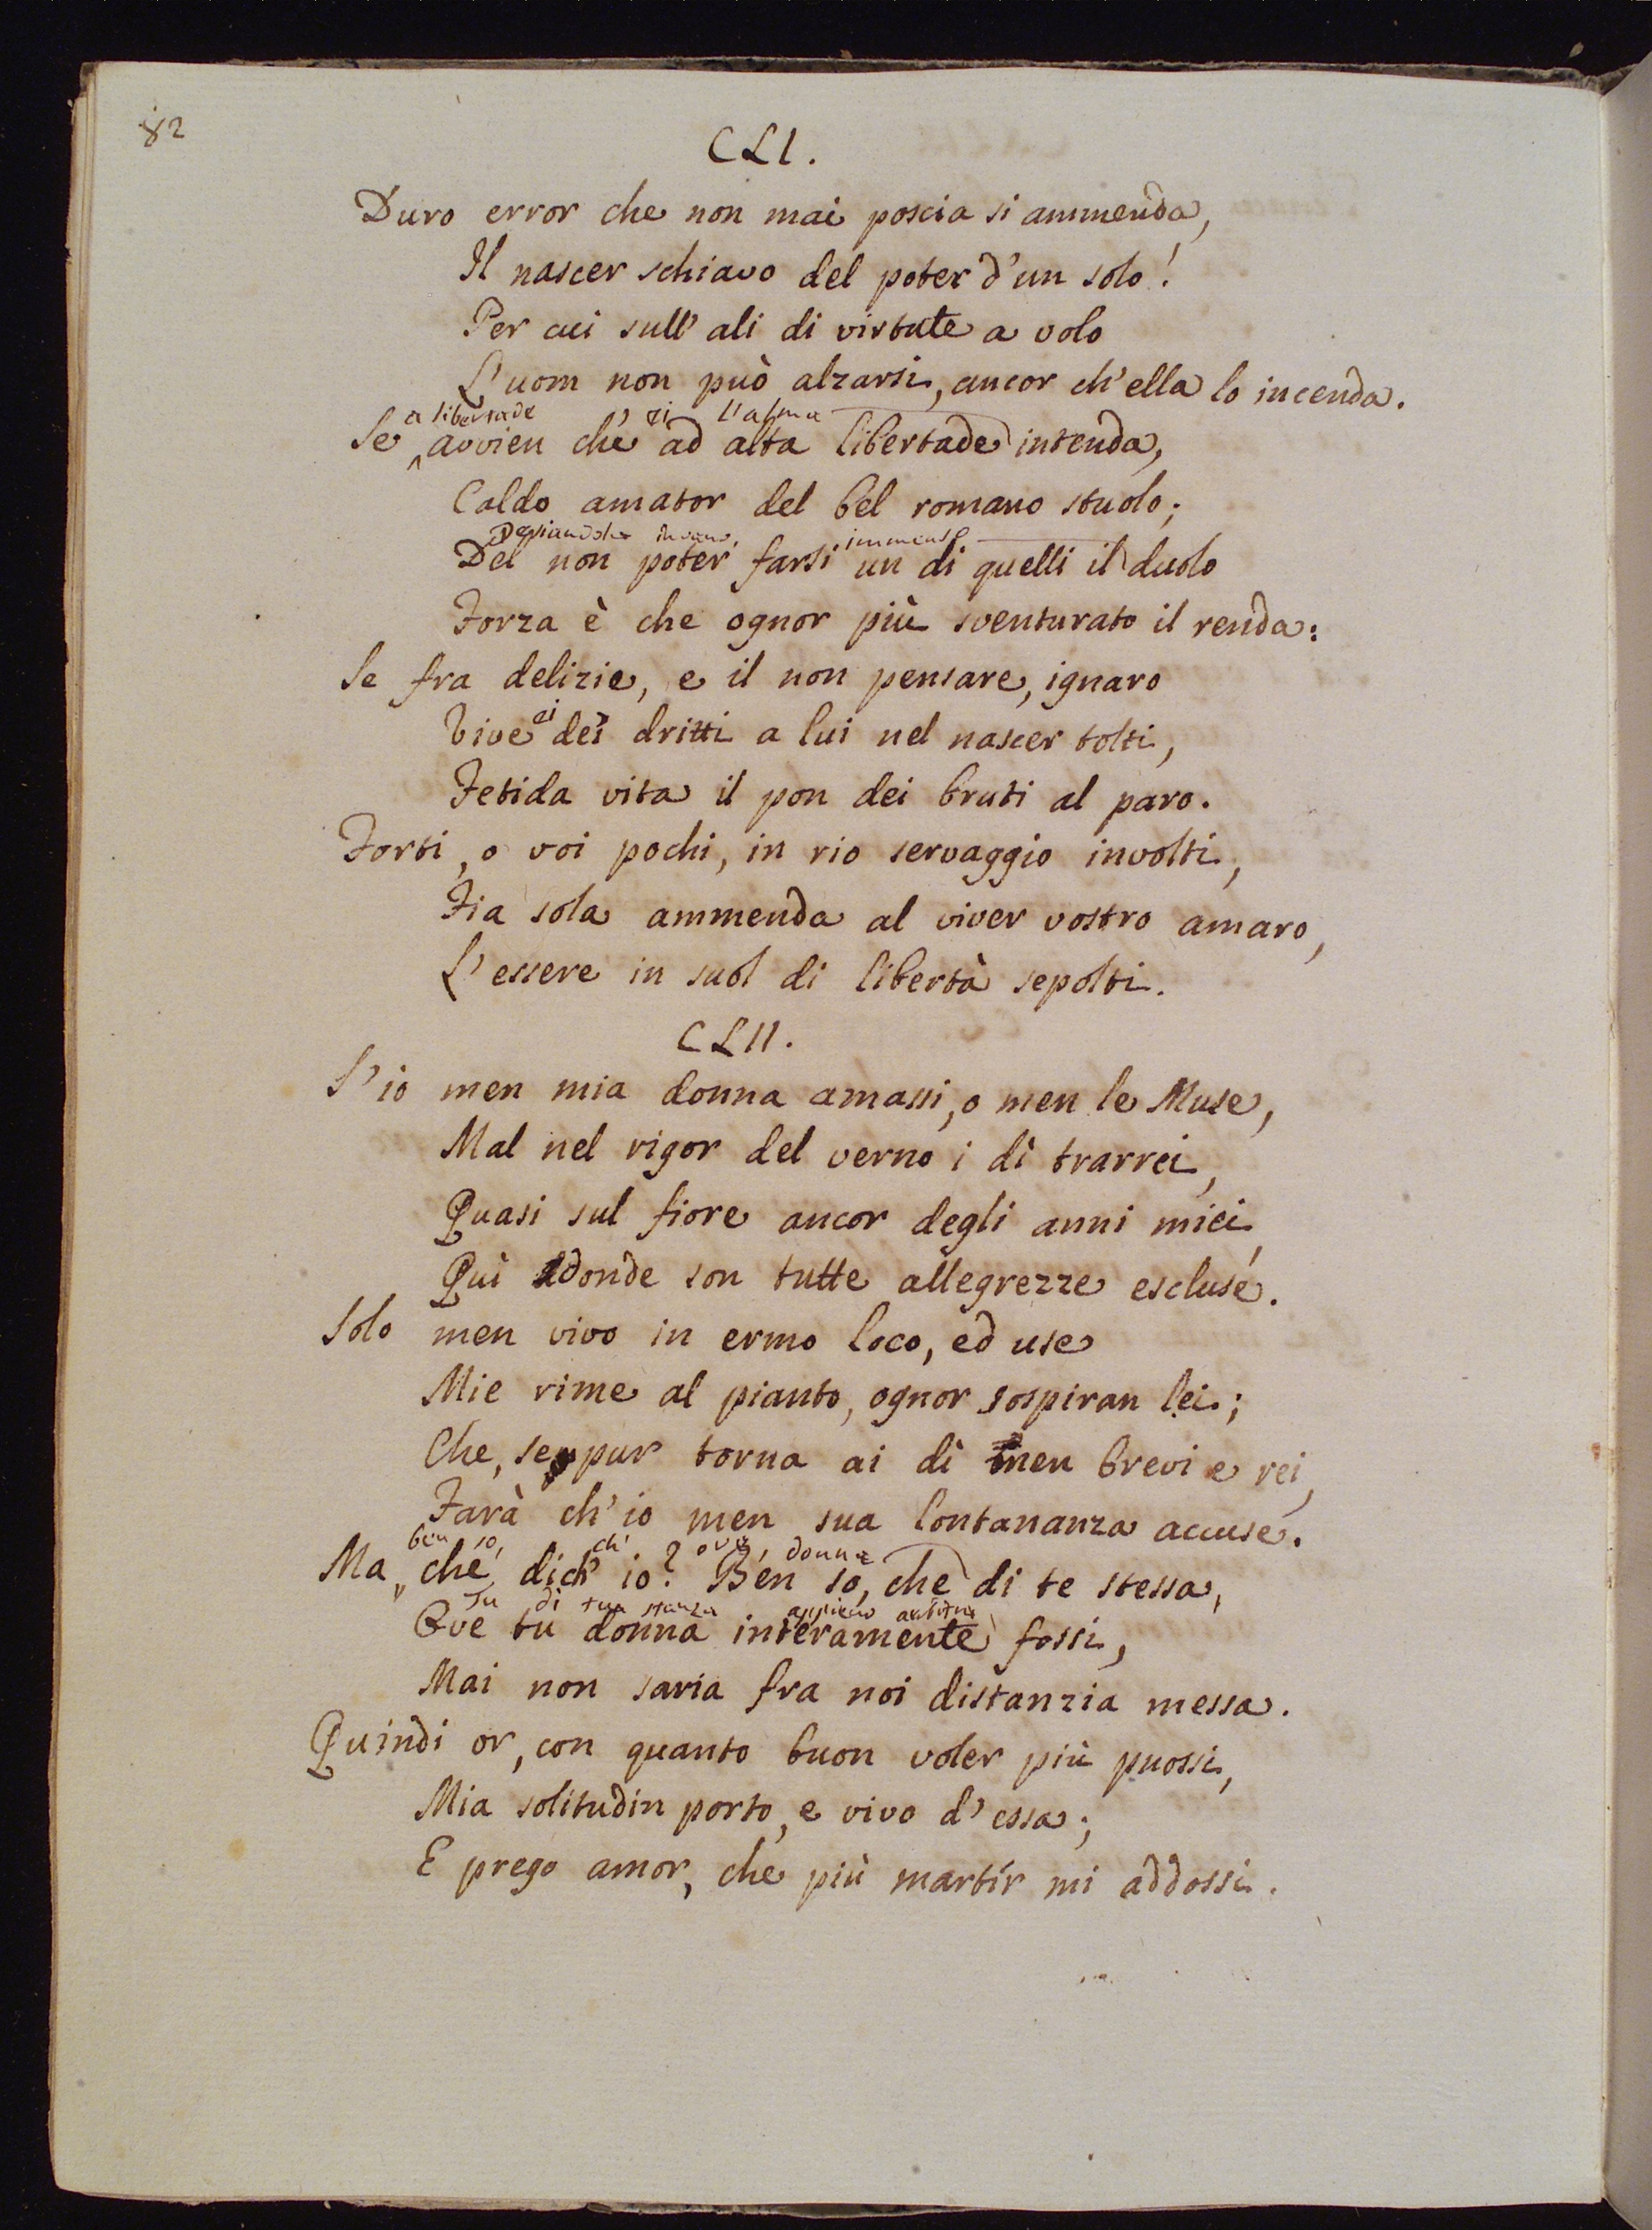 82
CLI.
Duro error che non mai poscia si ammenda,
Il nascer schiavo del poter d'un solo!
Per cui sull' ali di virtute a volo
L'uom non può alzarsi, ancor ch'ella lo incenda.
a libertade ei l'alma
Se avvien che ad alta libertade intenda,
Caldo amator del bel romano stuolo;
invano, immenso
Del non poter farsi un di quelli il duolo
Forza è che ognor più sventurato il renda:
Se fra delizie, e il non pensare, ignaro
ei
Vive dei dritti a lui nel nascer tolti,
Fetida vita il pon dei bruti al paro.
Forti, o voi pochi, in rio servaggio involti,
Fia sola ammenda al viver vostro amaro,
L'essere in suol di libertà sepolti.
CLII.
S'io men mia donna amassi, o men le Muse,
Mal nel rigor del verno i dì trarrei,
Quasi sul fiore ancor degli anni miei,
Quì donde son tutte allegrezze escluse.
Solo men vivo in ermo loco, ed use
Mie rime al pianto, ognor sospiran lei;
Che, se pur torna ai dì men brevi e rei,
Farà ch'io men sua lontananza accuse.
ben so, ch' ove, donna
Ma, che dich' io? Ben so, che di te stessa,
Tu di tua stanza appieno arbitra
Ove tu donna interamente fossi,
Mai non saria fra noi distanzia messa.
Quindi or, con quanto buon voler più puossi,
Mia solitudin porto, e vivo d'essa;
E prego amor, che più martír mi addossi.